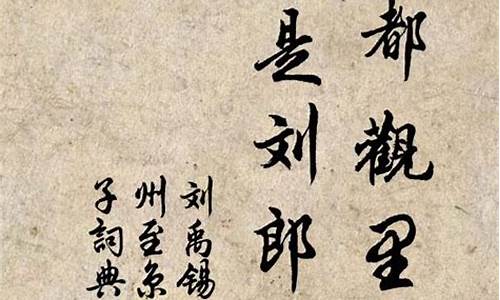 都觀里
是刘郎
刘禹锡
州至京
子詞典